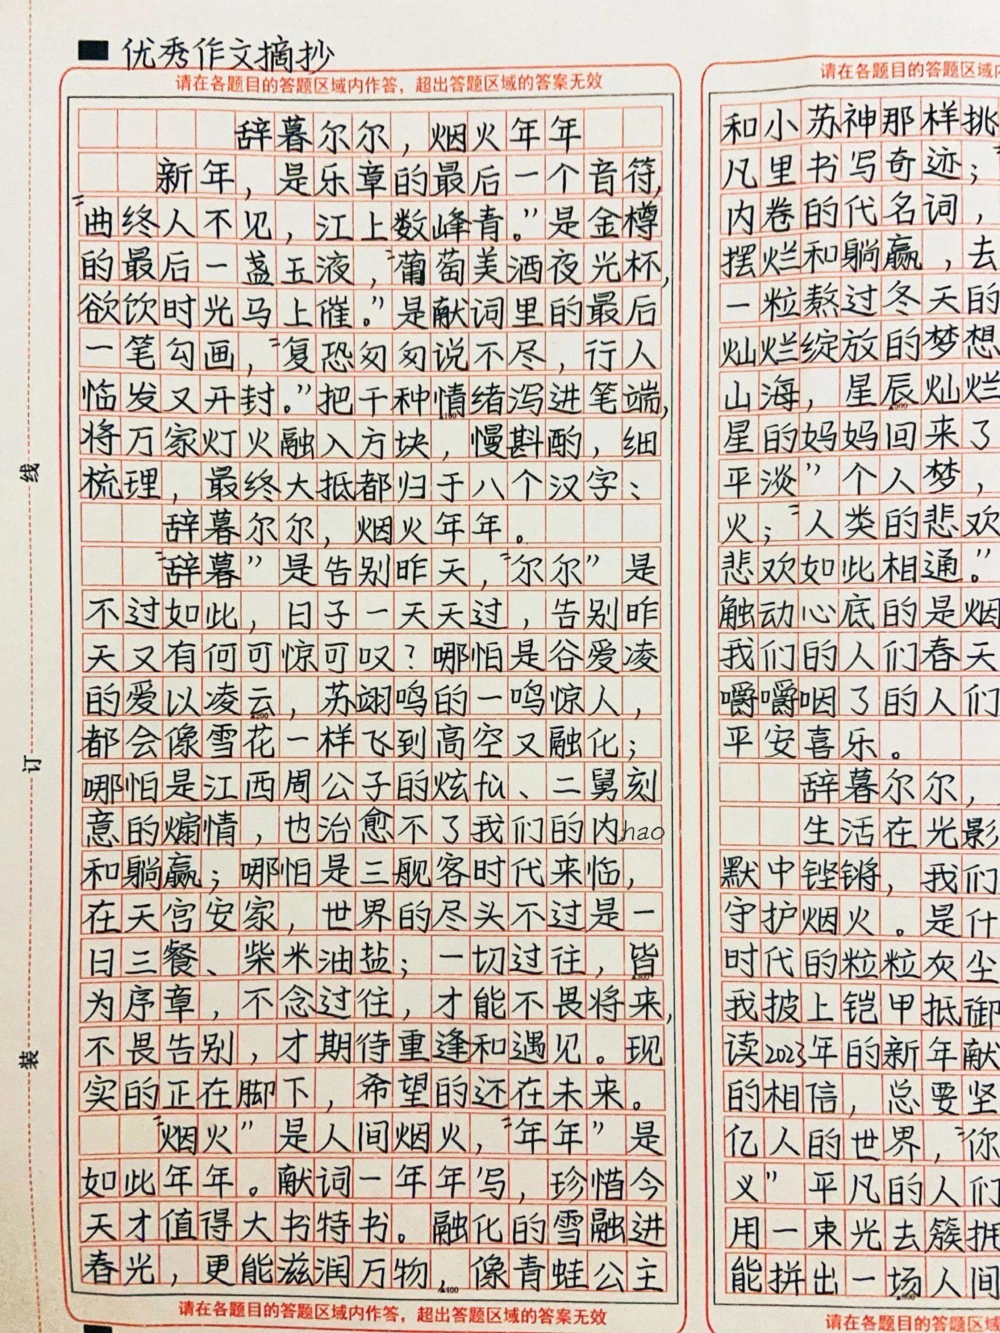 优秀作文摘抄
请在各题目的答题区域内作答，超出答题区域的答案无效
辞暮尔尔，烟火年年
新年，是乐章的最后一个音符，
“曲终人不见，江上数峰青。”是金樽
的最后一盏玉液，“葡萄美酒夜光杯，
欲饮时光马上催。”是献词里的最后
一笔勾画，“复恐匆匆说不尽，行人
临发又开封。”把千种情绪泻进笔端，
将万家灯火融入方块，慢斟酌，细
梳理，最终大抵都归于八个汉字：
辞暮尔尔，烟火年年。
“辞暮”是告别昨天，“尔尔”是
不过如此，日子一天天过，告别昨
天又有何可惊可叹？哪怕是谷爱凌
的爱以凌云，苏翊鸣的一鸣惊人，
都会像雪花一样飞到高空又融化；
哪怕是江西周公子的炫fù、二舅刻
意的煽情，也治愈不了我们的内hao
和躺赢；哪怕是三舰客时代来临，
在天宫安家，世界的尽头不过是一
日三餐、柴米油盐；一切过往，皆
为序章，不念过往，才能不畏将来，
不畏告别，才期待重逢和遇见。现
实的正在脚下，希望的还在未来。
“烟火”是人间烟火，“年年”是
如此年年。献词一年年写，珍惜今
天才值得大书特书。融化的雪融进
春光，更能滋润万物，像青蛙公主
请在各题目的答题区域内作答，超出答题区域的答案无效
请在各题目的答题区域内
和小苏神那样挑
凡里书写奇迹；“
内卷的代名词，
摆烂和躺赢，去
一粒熬过冬天的
灿烂绽放的梦想
山海，星辰灿烂
星的妈妈回来了
平淡”个人梦，
火；“人类的悲欢
悲欢如此相通。”
触动心底的是烟
我们的人们春天
嚼嚼咽了的人们
平安喜乐。
辞暮尔尔，
生活在光影
默中铿锵，我们
守护烟火。是什
时代的粒粒灰尘
我披上铠甲抵御
读2023年的新年献
的相信，总要坚
亿人的世界，“你
义”平凡的人们
用一束光去簇拥
能拼出一场人间
请在各题目的答题区域
线
订
装